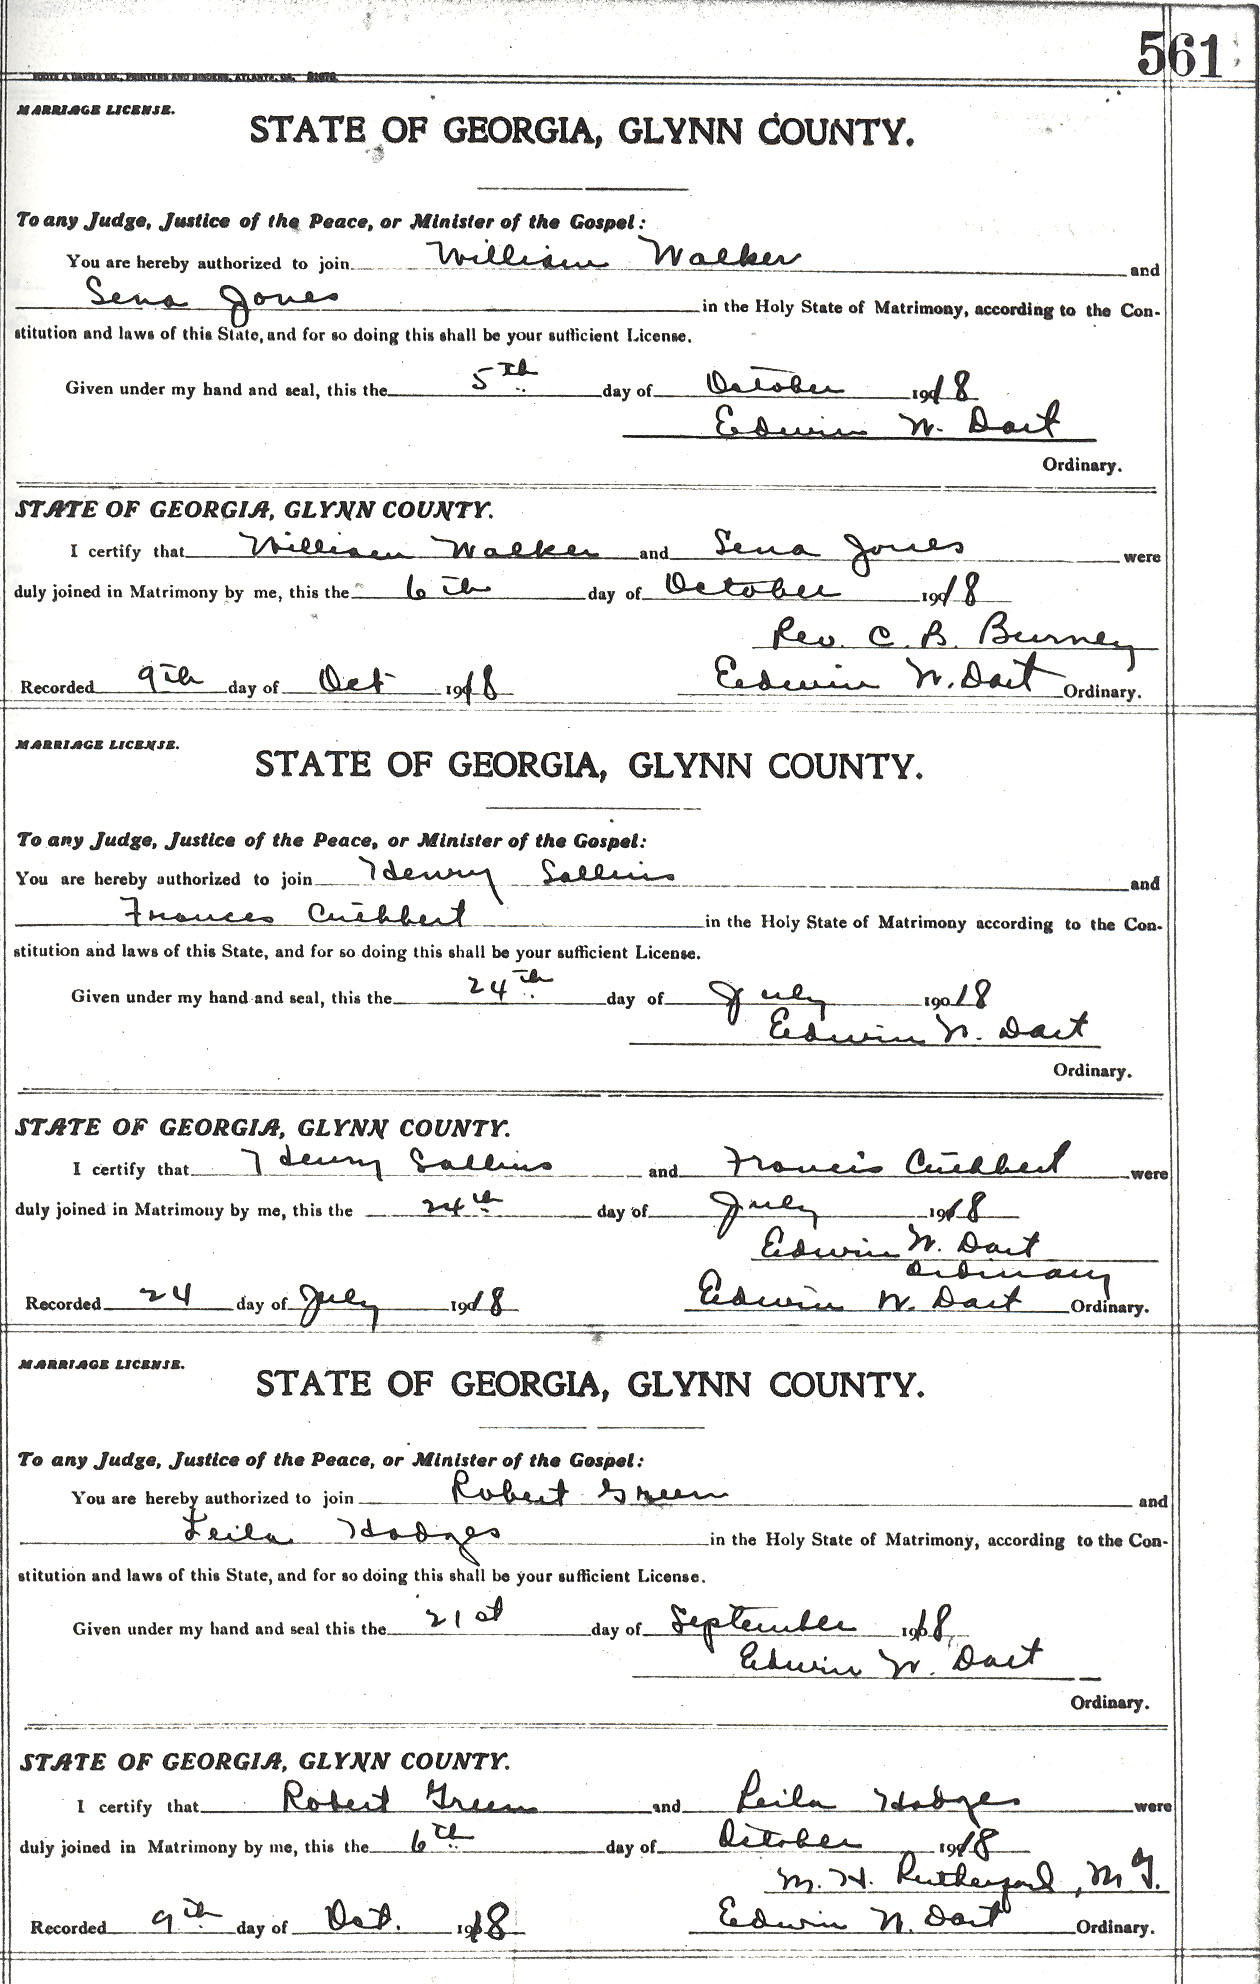 561
FOOTE & DAVIES CO., PRINTERS AND BINDERS, ATLANTA, GA.
MARRIAGE LICENSE.
STATE OF GEORGIA, GLYNN COUNTY.
To any Judge, Justice of the Peace, or Minister of the Gospel:
You are hereby authorized to join William Walker and
Sena Jones in the Holy State of Matrimony, according to the Con-
stitution and laws of this State, and for so doing this shall be your sufficient License.
Given under my hand and seal, this the 5th day of October 1918
Edwin W. Dart
Ordinary.
STATE OF GEORGIA, GLYNN COUNTY.
I certify that William Walker and Sena Jones were
duly joined in Matrimony by me, this the 6th day of October 1918
Rev. C. B. Burney
Recorded 9th day of Oct 1918 Edwin W. Dart Ordinary.
MARRIAGE LICENSE.
STATE OF GEORGIA, GLYNN COUNTY.
To any Judge, Justice of the Peace, or Minister of the Gospel:
You are hereby authorized to join Henry Sallins and
Frances Cuthbert in the Holy State of Matrimony according to the Con-
stitution and laws of this State, and for so doing this shall be your sufficient License.
Given under my hand and seal, this the 24th day of July 19018
Edwin W. Dart
Ordinary.
STATE OF GEORGIA, GLYNN COUNTY.
I certify that Henry Sallins and Francis Cuthbert were
duly joined in Matrimony by me, this the 24th day of July 1918
Edwin W. Dart
Ordinary
Recorded 24 day of July 1918 Edwin W. Dart Ordinary.
MARRIAGE LICENSE.
STATE OF GEORGIA, GLYNN COUNTY.
To any Judge, Justice of the Peace, or Minister of the Gospel:
You are hereby authorized to join Robert Green and
Leila Hodges in the Holy State of Matrimony, according to the Con-
stitution and laws of this State, and for so doing this shall be your sufficient License.
Given under my hand and seal this the 21st day of September 1918
Edwin W. Dart
Ordinary.
STATE OF GEORGIA, GLYNN COUNTY.
I certify that Robert Green and Leila Hodges were
duly joined in Matrimony by me, this the 6th day of October 1918
M. H. Rutherford, M G.
Recorded 9th day of Oct. 1918 Edwin W. Dart Ordinary.